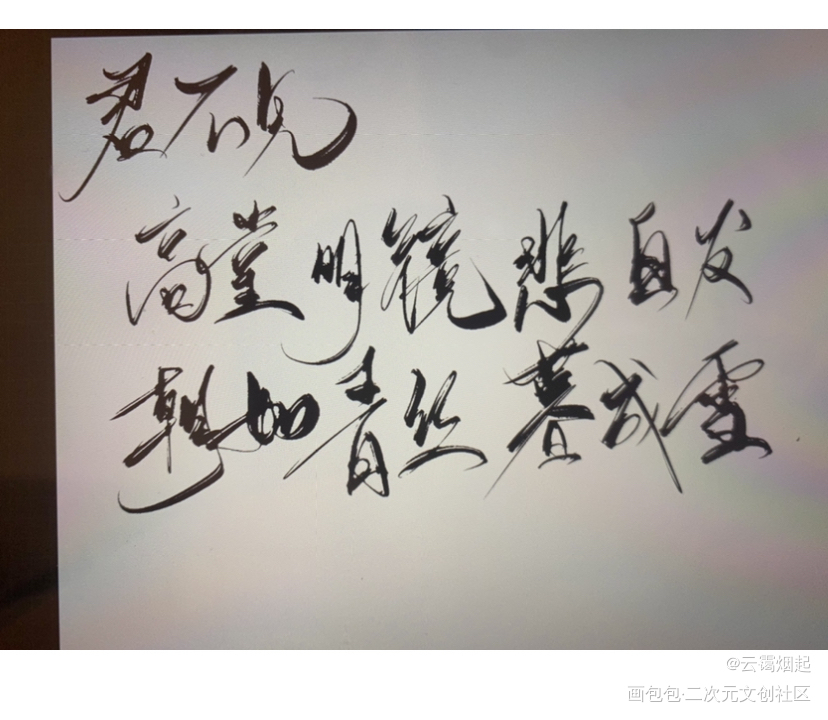 君不见
高堂明镜悲白发
朝如青丝暮成雪
@云霭烟起
画包包·二次元文创社区